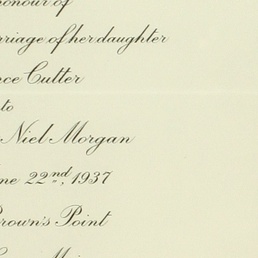 honour of
rriage of her daughter
nce Cutter
to
Niel Morgan
ne 22nd, 1937
Brown's Point